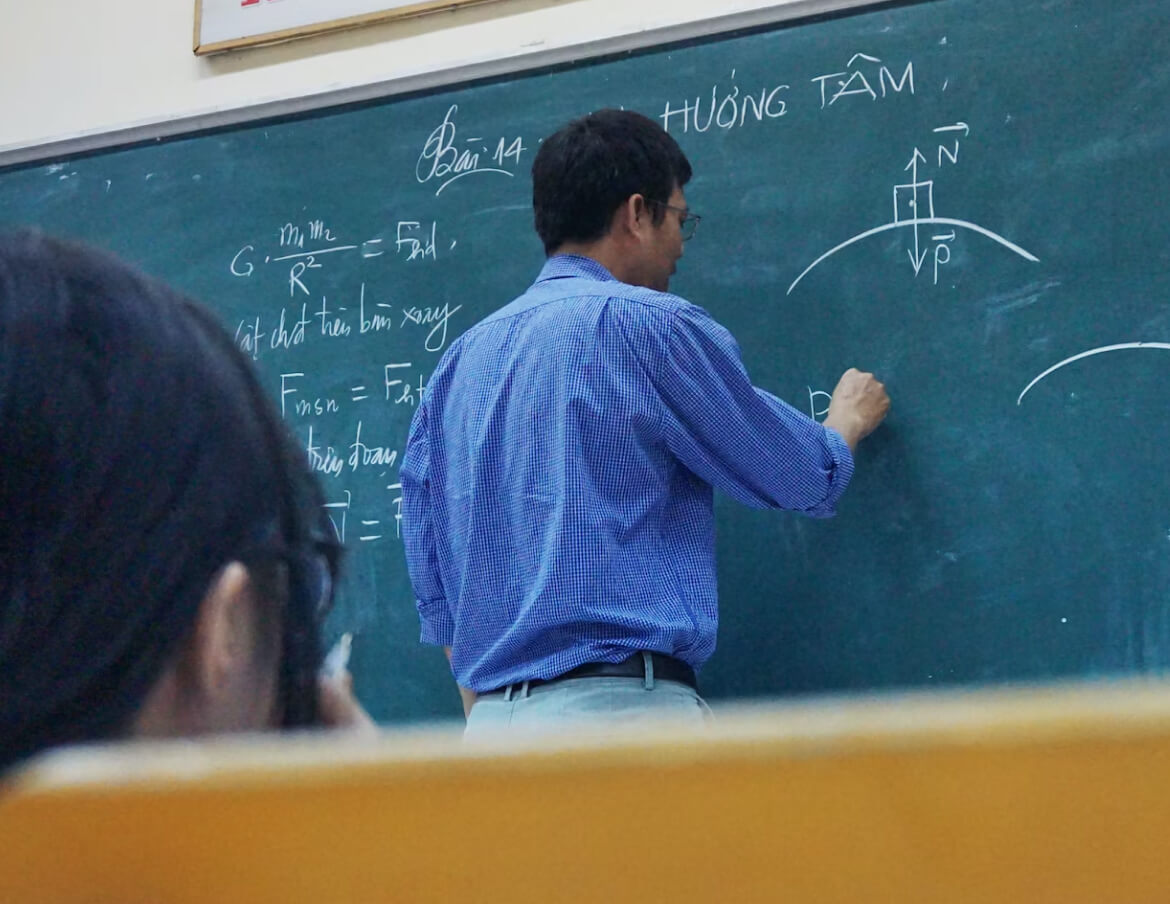 Bài 14 HƯỚNG TÂM
G. m₁m₂/R² = Fhd
vật chđ trên bàn xoay
Fmsn = Fht
trên đoạn
N⃗ =
N⃗
P⃗
P